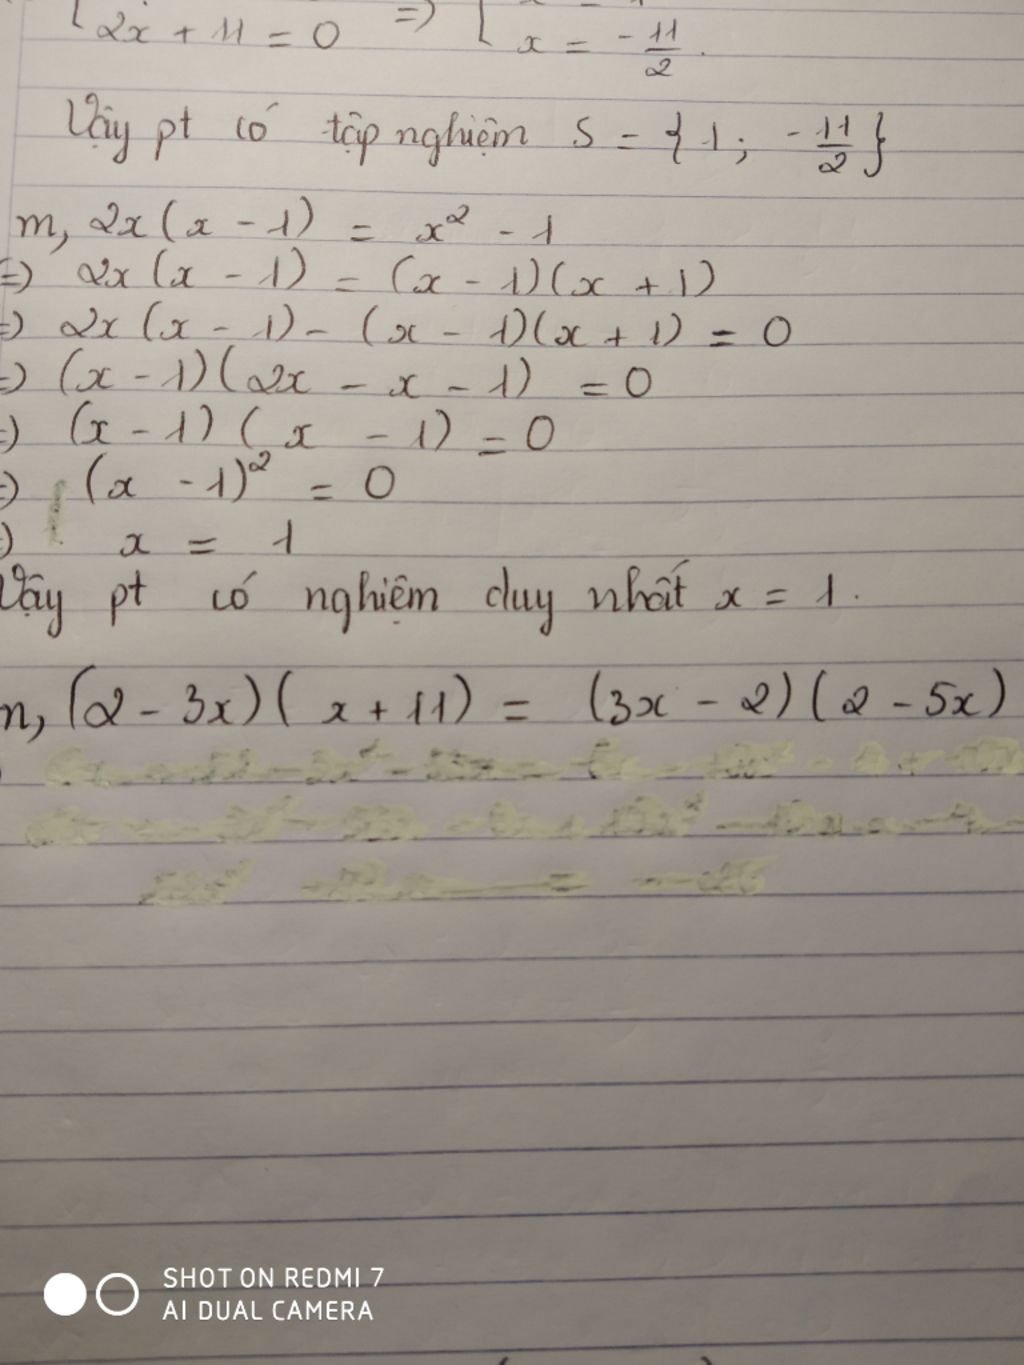 2x + 11 = 0 => [ x = -11/2.
Vậy pt có tập nghiệm S = { 1; -11/2 }
m, 2x(x - 1) = x² - 1
=> 2x(x - 1) = (x - 1)(x + 1)
=> 2x(x - 1) - (x - 1)(x + 1) = 0
=> (x - 1)(2x - x - 1) = 0
=> (x - 1)(x - 1) = 0
=> (x - 1)² = 0
=> x = 1
Vậy pt có nghiệm duy nhất x = 1.
n, (2 - 3x)(x + 11) = (3x - 2)(2 - 5x)
SHOT ON REDMI 7
AI DUAL CAMERA